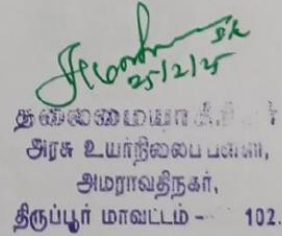 25/2/25
தலைமையாசிரியர்
அரசு உயர்நிலைப் பள்ளி,
அமராவதிநகர்,
திருப்பூர் மாவட்டம் - 102.